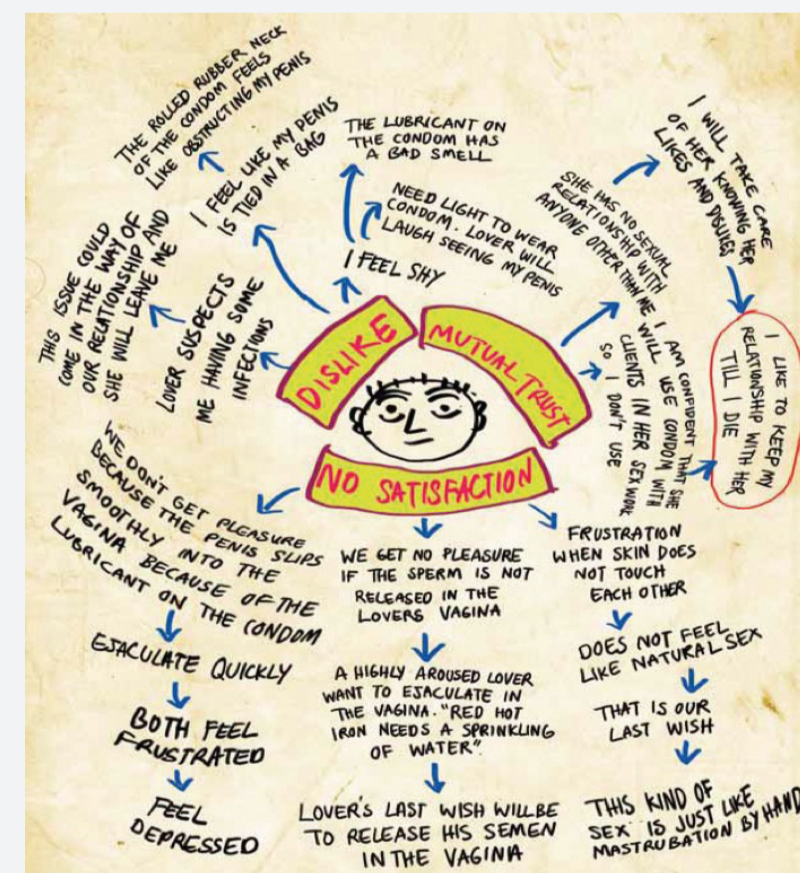 THE ROLLED RUBBER NECK
OF THE CONDOM FEELS
LIKE OBSTRUCTING MY PENIS
I FEEL LIKE MY PENIS
IS TIED IN A BAG
THE LUBRICANT ON
THE CONDOM HAS
A BAD SMELL
NEED LIGHT TO WEAR
CONDOM. LOVER WILL
LAUGH SEEING MY PENIS
I FEEL SHY
THIS ISSUE COULD
COME IN THE WAY OF
OUR RELATIONSHIP AND
SHE WILL LEAVE ME
LOVER SUSPECTS
ME HAVING SOME
INFECTIONS
DISLIKE
MUTUAL TRUST
SHE HAS NO SEXUAL
RELATIONSHIP WITH
ANYONE OTHER THAN ME
I WILL TAKE CARE
OF HER KNOWING HER
LIKES AND DISLIKES
I AM CONFIDENT THAT SHE
WILL USE CONDOM WITH
CLIENTS IN HER SEX WORK
SO I DON'T USE
I LIKE TO KEEP MY
RELATIONSHIP WITH HER
TILL I DIE
NO SATISFACTION
WE DON'T GET PLEASURE
BECAUSE THE PENIS SLIPS
SMOOTHLY INTO THE
VAGINA BECAUSE OF THE
LUBRICANT ON THE CONDOM
EJACULATE QUICKLY
BOTH FEEL
FRUSTRATED
FEEL
DEPRESSED
WE GET NO PLEASURE
IF THE SPERM IS NOT
RELEASED IN THE
LOVERS VAGINA
A HIGHLY AROUSED LOVER
WANT TO EJACULATE IN
THE VAGINA. "RED HOT
IRON NEEDS A SPRINKLING
OF WATER".
LOVER'S LAST WISH WILL BE
TO RELEASE HIS SEMEN
IN THE VAGINA
FRUSTRATION
WHEN SKIN DOES
NOT TOUCH
EACH OTHER
DOES NOT FEEL
LIKE NATURAL SEX
THAT IS OUR
LAST WISH
THIS KIND OF
SEX IS JUST LIKE
MASTRUBATION BY HAND